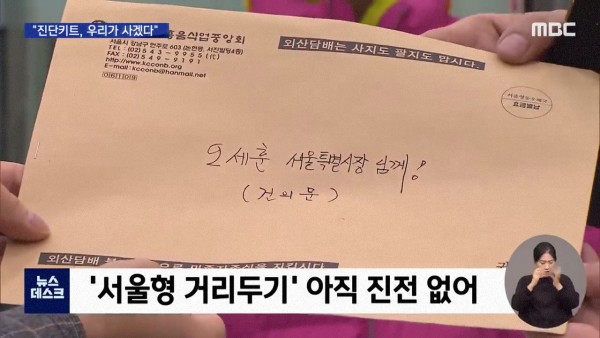 "진단키트, 우리가 사겠다"
MBC
음식업중앙회
TEL : (02) 543-9955 (代)
FAX : (02) 549-9191
http://www.kcconb.org
E-mail : kcconb@hanmail.net
외산담배는 사지도 팔지도 맙시다.
요금별납
오세훈 서울특별시장 님께!
(건의문)
외산담배
뉴스
데스크
'서울형 거리두기' 아직 진전 없어